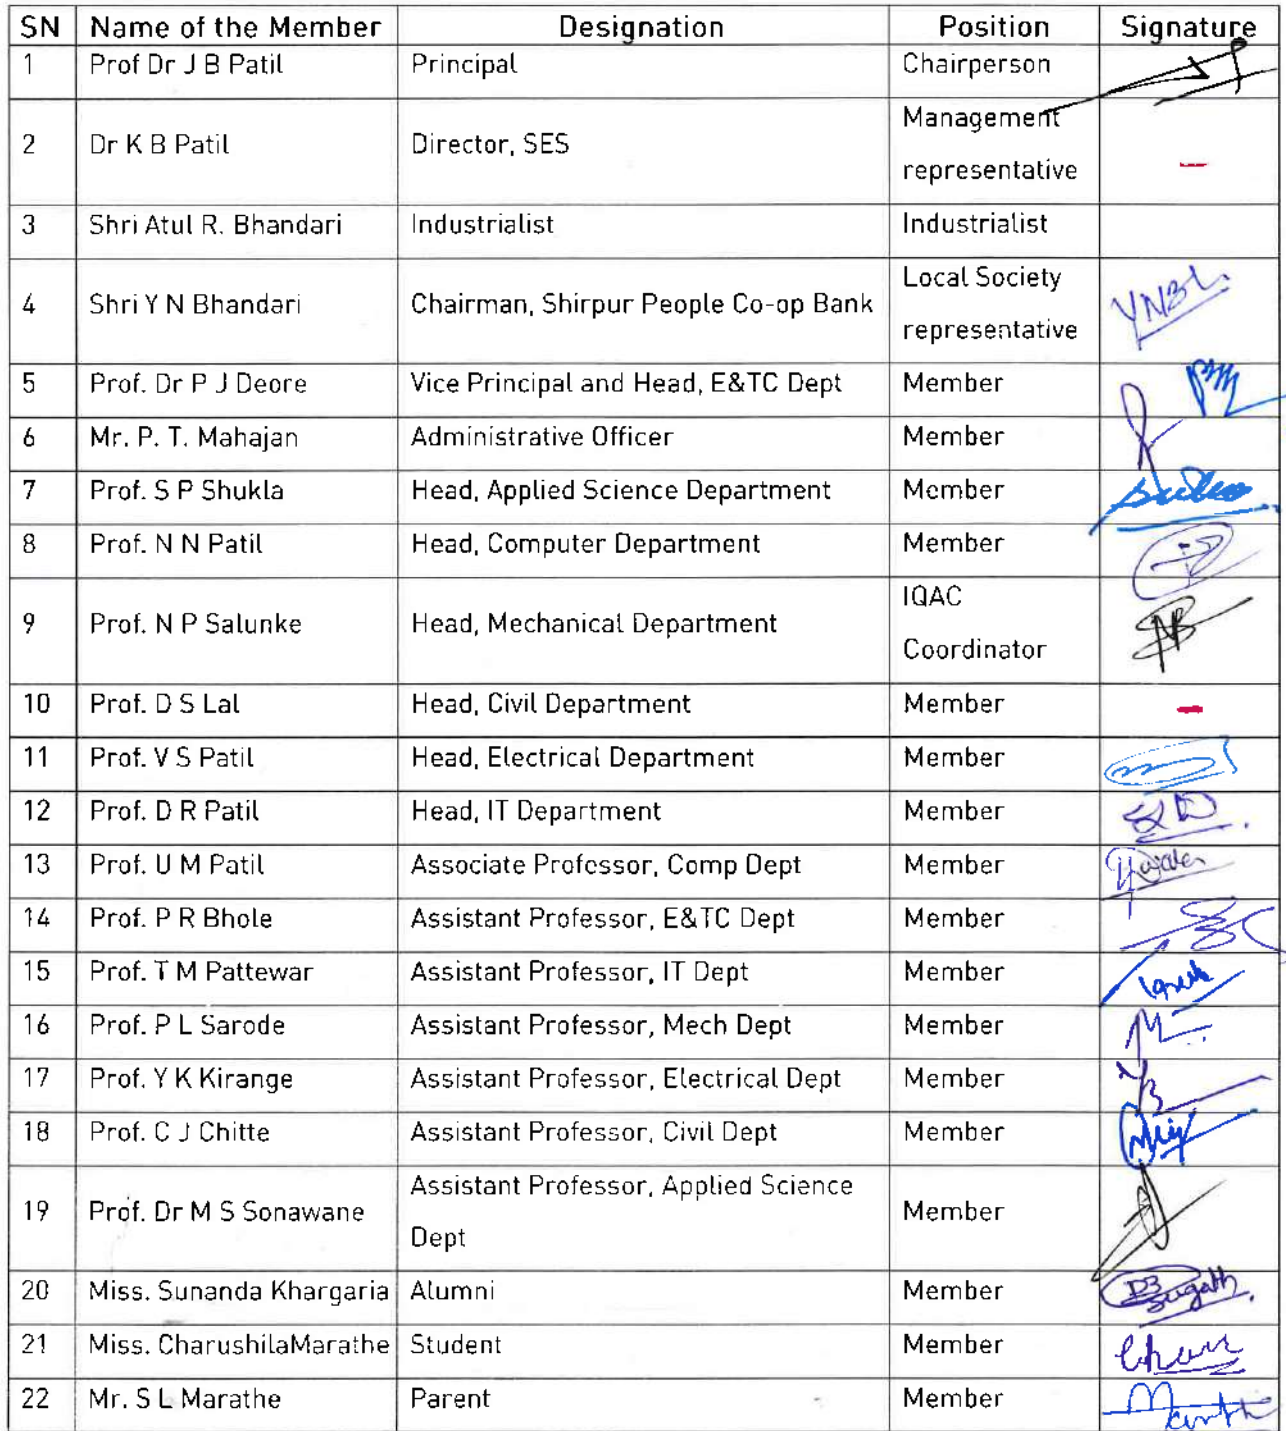 SN Name of the Member Designation Position Signature
1 Prof Dr J B Patil Principal Chairperson
2 Dr K B Patil Director, SES Management
representative
3 Shri Atul R. Bhandari Industrialist Industrialist
4 Shri Y N Bhandari Chairman, Shirpur People Co-op Bank Local Society
representative
5 Prof. Dr P J Deore Vice Principal and Head, E&TC Dept Member
6 Mr. P. T. Mahajan Administrative Officer Member
7 Prof. S P Shukla Head, Applied Science Department Member
8 Prof. N N Patil Head, Computer Department Member
9 Prof. N P Salunke Head, Mechanical Department IQAC
Coordinator
10 Prof. D S Lal Head, Civil Department Member
11 Prof. V S Patil Head, Electrical Department Member
12 Prof. D R Patil Head, IT Department Member
13 Prof. U M Patil Associate Professor, Comp Dept Member
14 Prof. P R Bhole Assistant Professor, E&TC Dept Member
15 Prof. T M Pattewar Assistant Professor, IT Dept Member
16 Prof. P L Sarode Assistant Professor, Mech Dept Member
17 Prof. Y K Kirange Assistant Professor, Electrical Dept Member
18 Prof. C J Chitte Assistant Professor, Civil Dept Member
19 Prof. Dr M S Sonawane Assistant Professor, Applied Science
Dept Member
20 Miss. Sunanda Khargaria Alumni Member
21 Miss. CharushilaMarathe Student Member
22 Mr. S L Marathe Parent Member